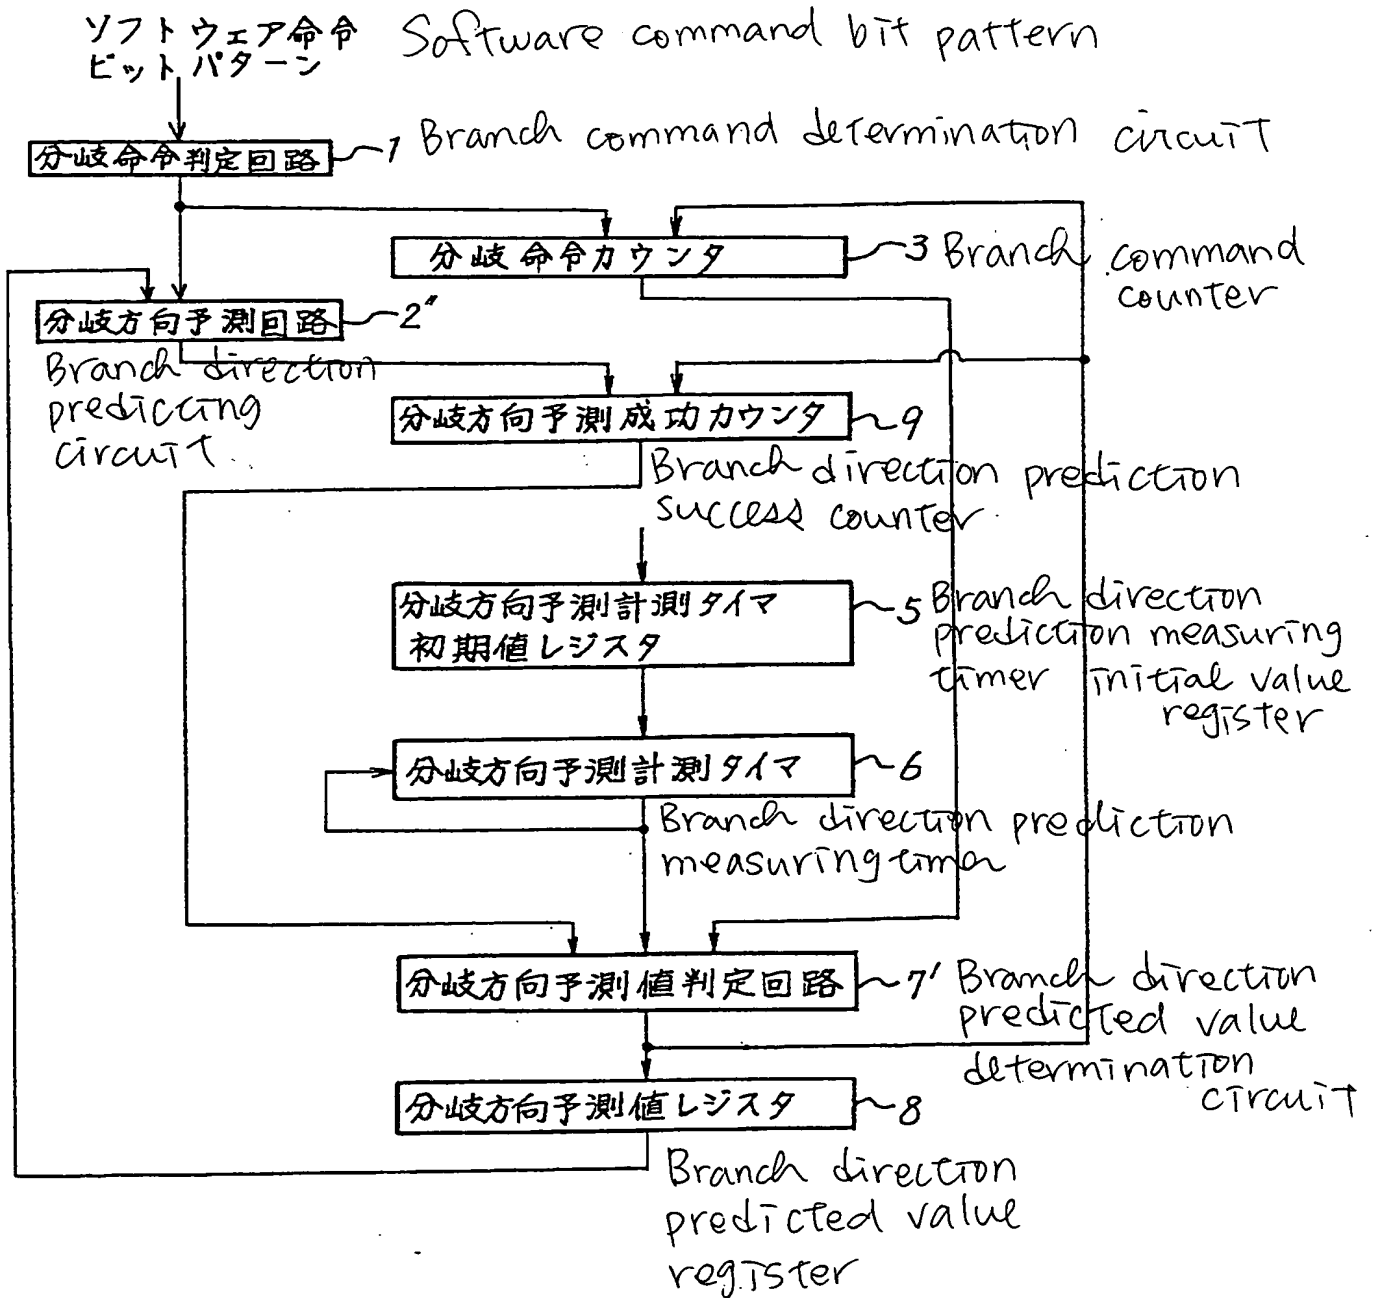 ソフトウェア命令
ビットパターン
Software command bit pattern
分岐命令判定回路
1 Branch command determination circuit
分岐命令カウンタ
3 Branch command
counter
分岐方向予測回路
2"
Branch direction
predicting
circuit
分岐方向予測成功カウンタ
9
Branch direction prediction
success counter
分岐方向予測計測タイマ
初期値レジスタ
5 Branch direction
prediction measuring
timer initial value
register
分岐方向予測計測タイマ
6
Branch direction prediction
measuring timer
分岐方向予測値判定回路
7' Branch direction
predicted value
determination
circuit
分岐方向予測値レジスタ
8
Branch direction
predicted value
register